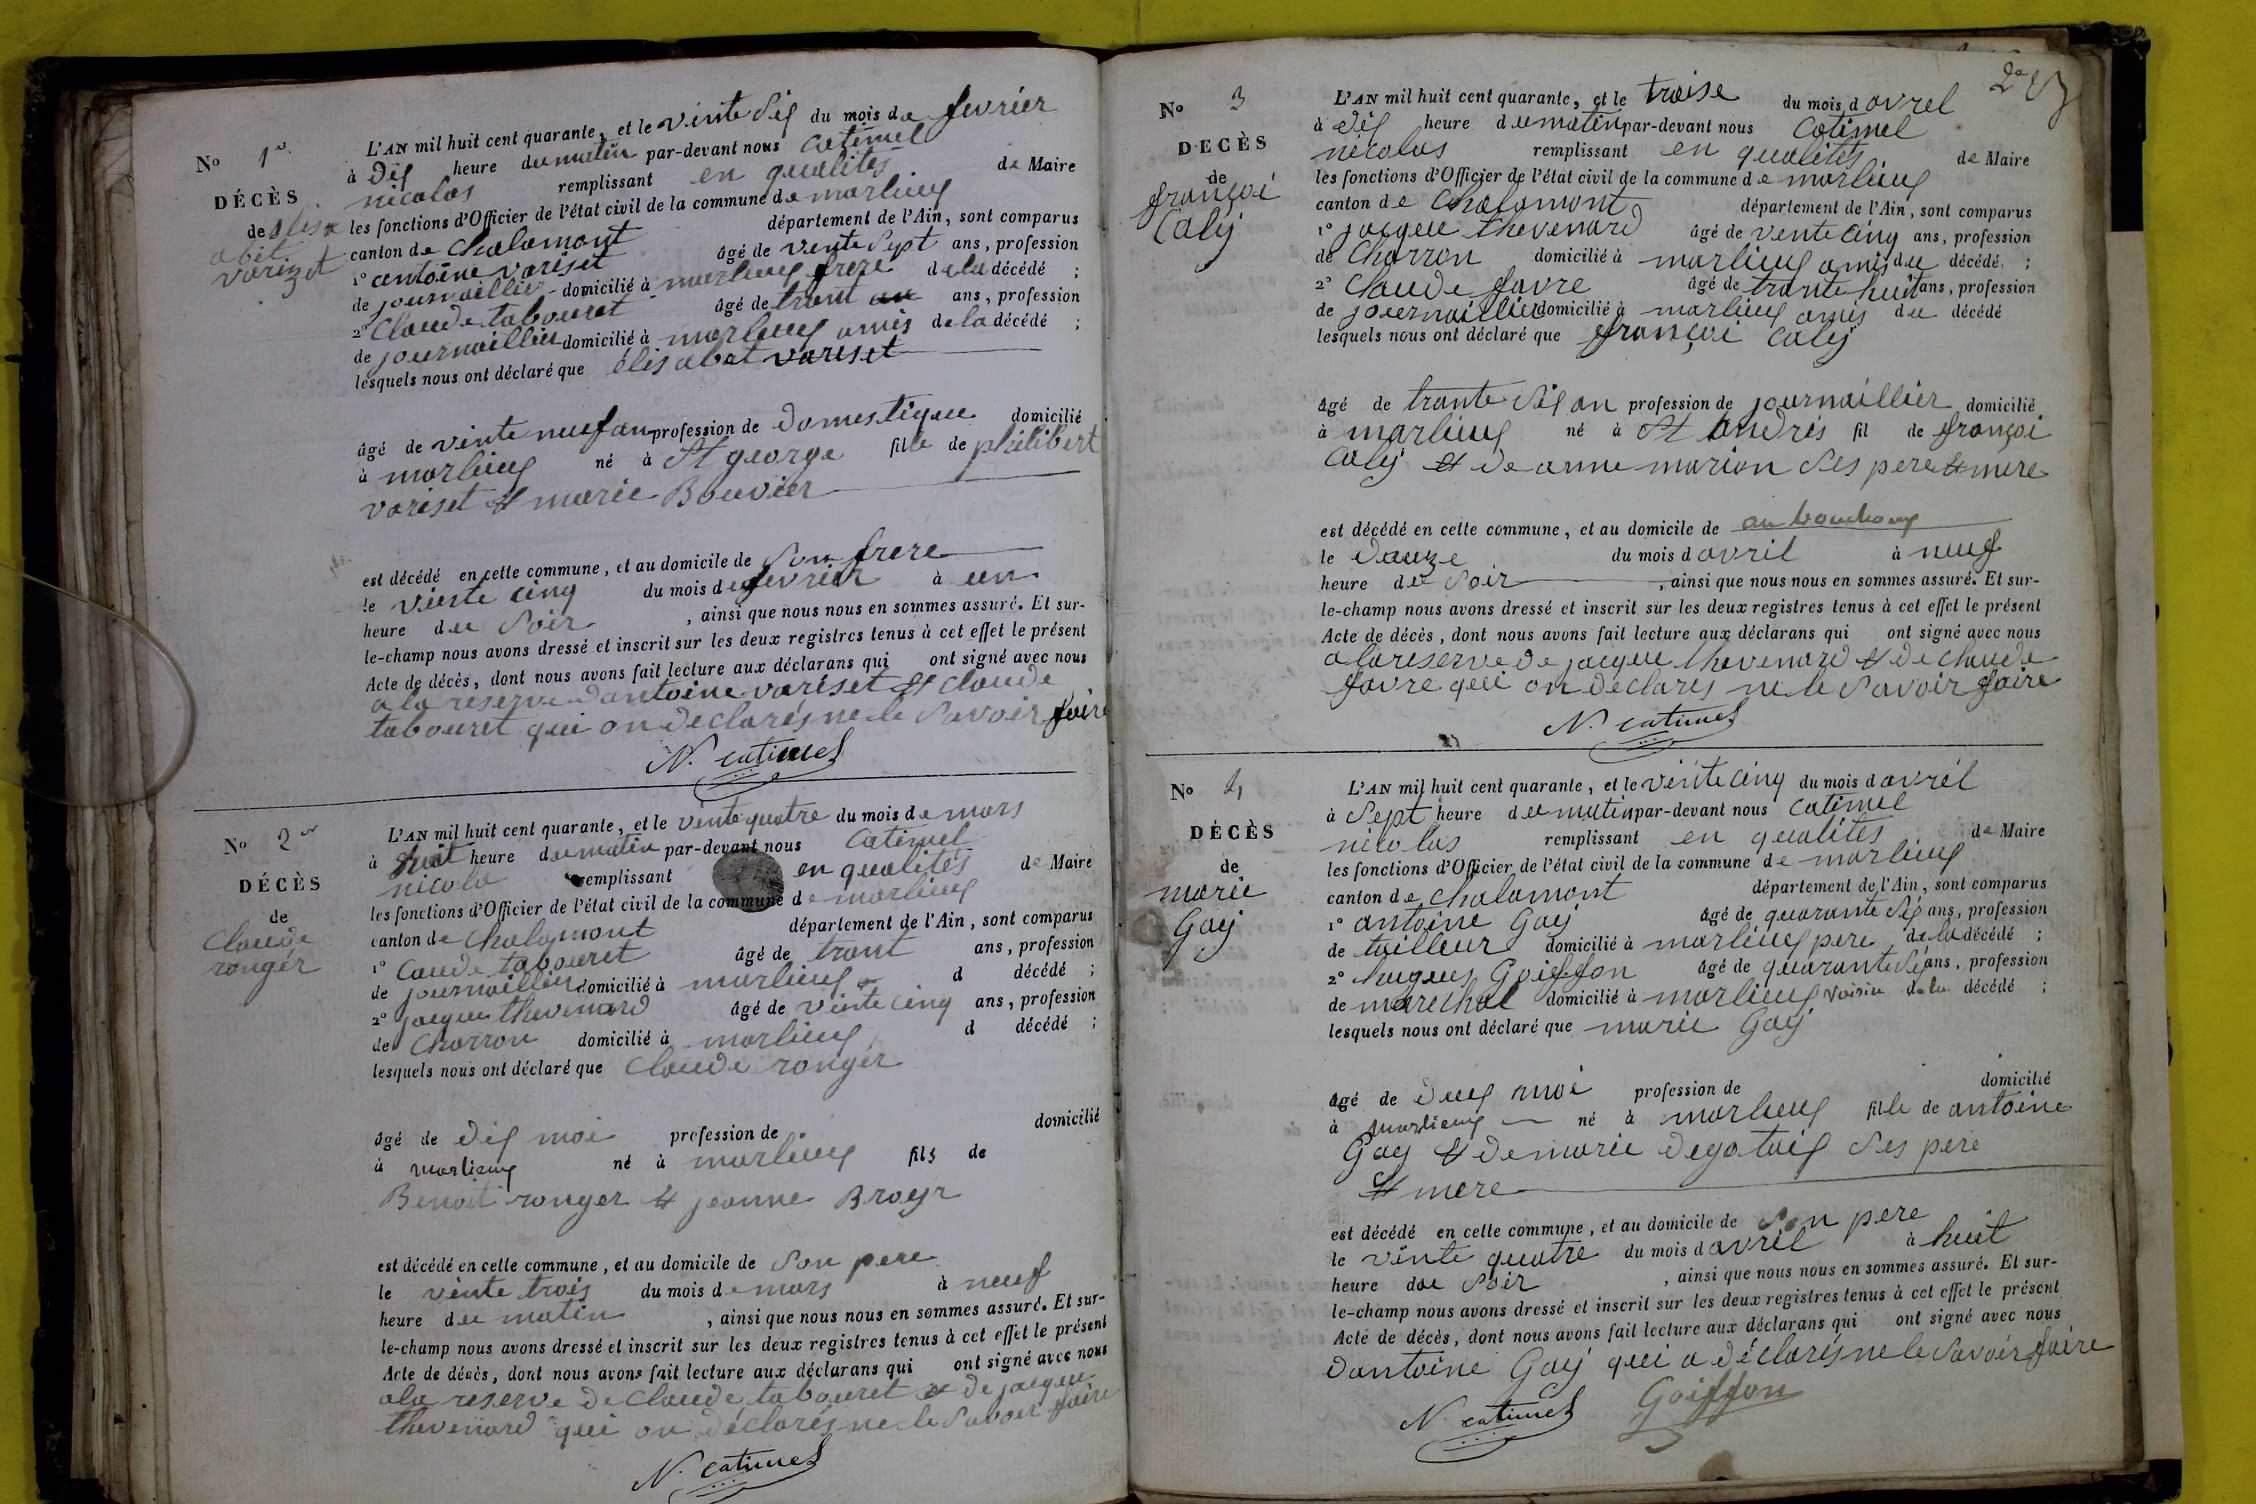 No 1er
DÉCÈS
de élisa
abét
varizet
L'AN mil huit cent quarante, et le vinte sis du mois de fevrier
à dis heure du matin par-devant nous catimel
nicolas remplissant en qualités de Maire
les fonctions d'Officier de l'état civil de la commune de marlieux
canton de chalamont département de l'Ain, sont comparus
1° antoine variset âgé de vente sept ans, profession
de journaillier domicilié à marlieux frere de la décédé ;
2° Claude tabouret âgé de trant an ans, profession
de journaillier domicilié à marlieux amis de la décédé ;
lesquels nous ont déclaré que élisabet variset
âgé de vinte neuf an profession de domestique domicilié
à marlieux né à St george fille de philibert
variset et marie Bouvier
est décédé en cette commune, et au domicile de son frere
le vinte cinq du mois de fevrier à un
heure du soir , ainsi que nous nous en sommes assuré. Et sur-
le-champ nous avons dressé et inscrit sur les deux registres tenus à cet effet le présent
Acte de décès, dont nous avons fait lecture aux déclarans qui ont signé avec nous
a la reserve dantoine variset et claude
tabouret qui on declarés ne le savoir faire
N. catimel
No 2
DÉCÈS
de
Claude
rongér
L'AN mil huit cent quarante, et le vinte quatre du mois de mars
à huit heure du matin par-devant nous catimel
nicola remplissant en qualités de Maire
les fonctions d'Officier de l'état civil de la commune de marlieux
canton de chalamont département de l'Ain, sont comparus
1° Caude tabouret âgé de trant ans, profession
de journaillier domicilié à marlieux d décédé ;
2° jacque thevenard âgé de vinte cinq ans, profession
de Charron domicilié à marlieux d décédé ;
lesquels nous ont déclaré que Claude ronger
âgé de dis moi profession de domicilié
à marlieux né à marlieux fils de
Benoit ronger et jeanne Broyr
est décédé en cette commune, et au domicile de son pere
le vinte trois du mois de mars à neuf
heure du matin , ainsi que nous nous en sommes assuré. Et sur-
le-champ nous avons dressé et inscrit sur les deux registres tenus à cet effet le présent
Acte de décès, dont nous avons fait lecture aux déclarans qui ont signé avec nous
a la reserve de claude tabouret et de jacque
thevenard qui on déclarés ne le savoir faire
N. catimel
No 3
DECÈS
de
françoi
Caly
L'AN mil huit cent quarante, et le traise du mois d avrel
à dis heure du matin par-devant nous catimel
nicolas remplissant en qualités de Maire
les fonctions d'Officier de l'état civil de la commune de marlieux
canton de chalamont département de l'Ain, sont comparus
1° jacque thevenard âgé de vente cinq ans, profession
de Charron domicilié à marlieux amis du décédé ;
2° Claude favre âgé de trante huit ans, profession
de journaillier domicilié à marlieux amis du décédé
lesquels nous ont déclaré que françoi caly
âgé de trante sis an profession de journaillier domicilié
à marlieux né à St andrés fil de françoi
Caly et de anne marion ses pere et mere
est décédé en cette commune, et au domicile de
le douze du mois d avril à neuf
heure du soir , ainsi que nous nous en sommes assuré. Et sur-
le-champ nous avons dressé et inscrit sur les deux registres tenus à cet effet le présent
Acte de décès, dont nous avons fait lecture aux déclarans qui ont signé avec nous
a la reserve de jacque thevenard et de claude
favre qui on declarés ne le savoir faire
N. catimel
No 4
DÉCÈS
de
marie
Gay
L'AN mil huit cent quarante, et le vinte cinq du mois d avrél
à sept heure du matin par-devant nous catimel
nicolas remplissant en qualités de Maire
les fonctions d'Officier de l'état civil de la commune de marlieux
canton de chalamont département de l'Ain, sont comparus
1° antoine Gay âgé de quarante sis ans, profession
de tailleur domicilié à marlieux pere de la décédé ;
2° hugues Goiffon âgé de quarante sis ans, profession
de marechal domicilié à marlieux voisin de la décédé ;
lesquels nous ont déclaré que marie Gay
âgé de deux moi profession de domicilié
à marlieux né à marlieux fille de antoine
Gay et de marie degotais ses pere
et mere
est décédé en cette commune, et au domicile de son pere
le vinte quatre du mois d avril à huit
heure du soir , ainsi que nous nous en sommes assuré. Et sur-
le-champ nous avons dressé et inscrit sur les deux registres tenus à cet effet le présent
Acte de décès, dont nous avons fait lecture aux déclarans qui ont signé avec nous
dantoine Gay qui a déclarés ne le savoir faire
N. catimel Goiffon